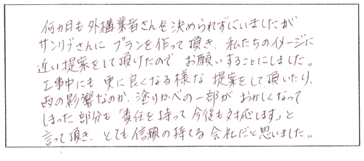 何カ月も外構業者さんを決められずにいましたが
サンリブさんにプランを作って頂き、私たちのイメージに
近い提案をして頂けたので お願いすることにしました。
工事中にも 更に良くなる様な 提案をして頂いたり、
雨の影響なのか、塗りかべの一部が おかしくなって
しまった部分も「責任を持って 今後も対応します」と
言って頂き、とても信頼の持てる 会社だと思いました。